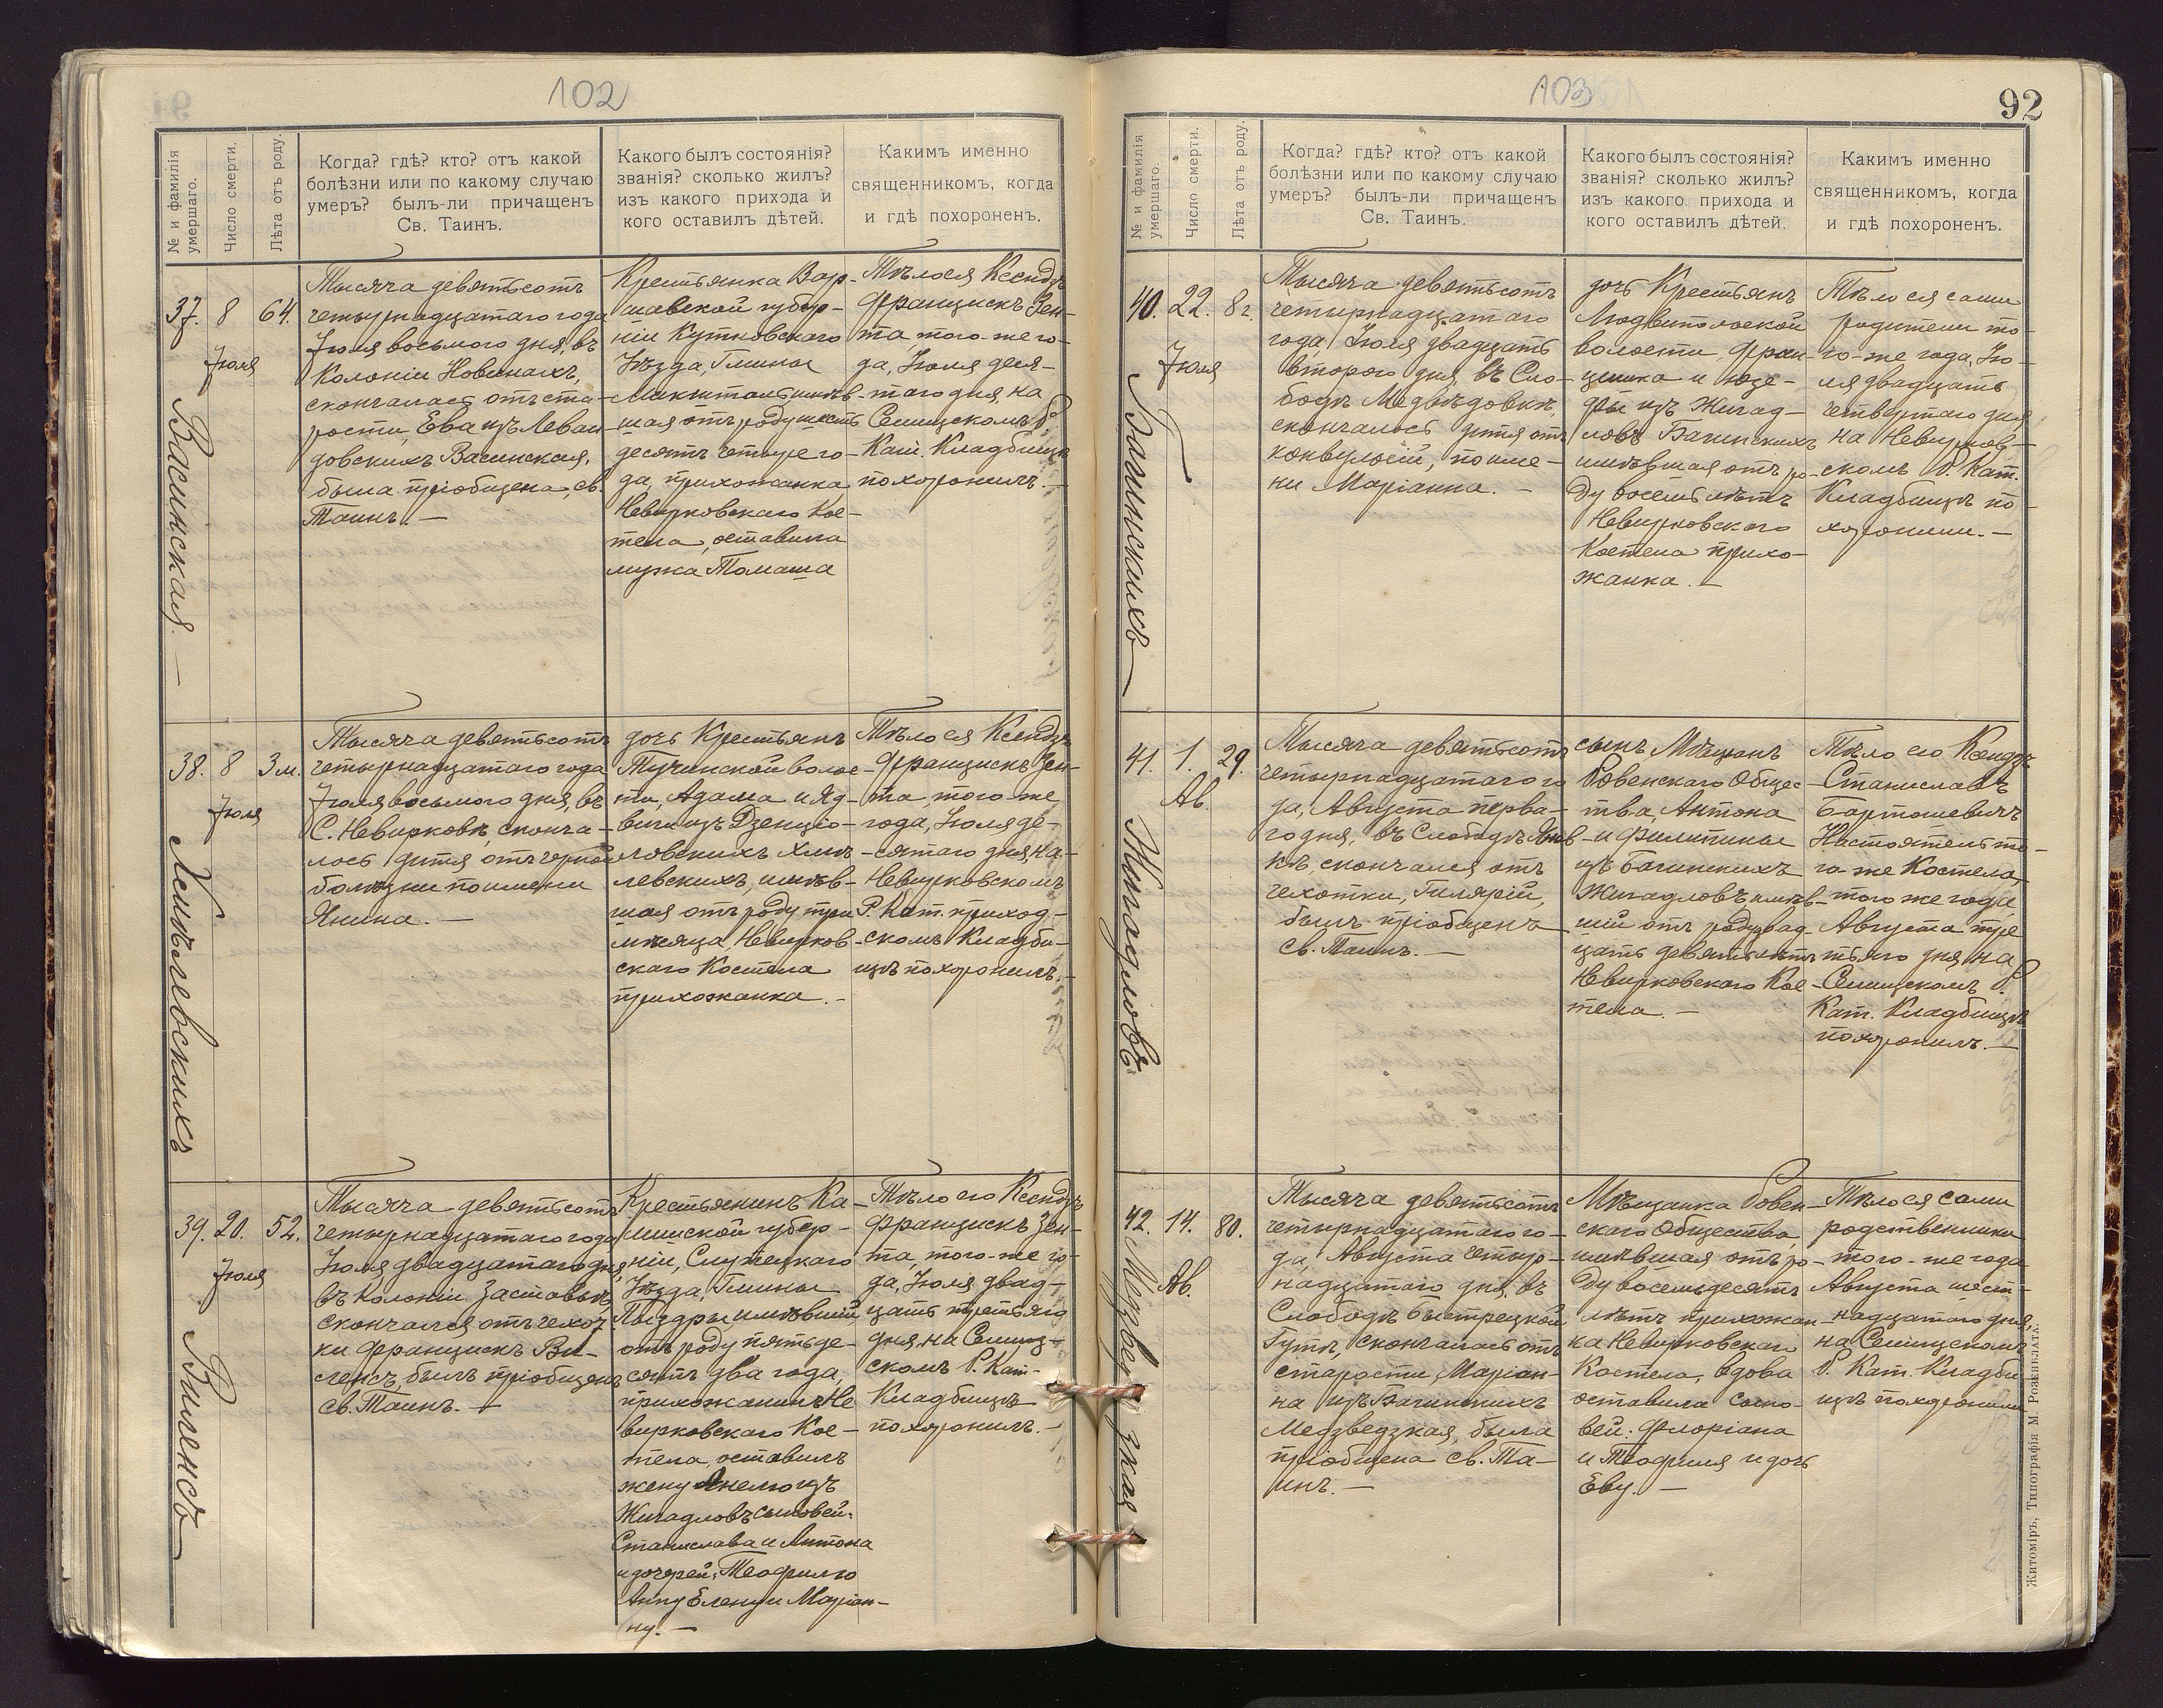 102
№ и фамилія умершаго.
Число смерти.
Лѣта отъ роду.
Когда? гдѣ? кто? отъ какой
болѣзни или по какому случаю
умеръ? былъ-ли причащенъ
Св. Таинъ.
Какого былъ состоянія?
званія? сколько жилъ?
изъ какого прихода и
кого оставилъ дѣтей.
Какимъ именно
священникомъ, когда
и гдѣ похороненъ.
37.
8
Іюля
64.
Васинская. —
Тысяча девятьсотъ
четырнадцатаго года
Іюля восьмого дня, въ
Колоніи Новинахъ,
скончалась отъ ста-
рости, Ева изъ Леван-
довскихъ Васинская,
была пріобщена, св.
Таинъ. —
Крестьянка Вар-
шавской губер-
ніи Кутновскаго
Уѣзда, Гмины
шая отъ роду шесть
десятъ четыре го-
да, прихожанка
Невирковскаго Кос-
тела, оставила
мужа Томаша
Тѣло ея Ксендзъ
Францискъ Зен-
та, того-же го-
да, Іюля деся-
таго дня, на
Селищскомъ Р.
Кат. Кладбищѣ
похоронилъ. —
38.
8
Іюля
3 м.
Хмѣлевскихъ
Тысяча девятьсотъ
четырнадцатаго года
Іюля восьмого дня, въ
С. Невирковѣ, сконча-
лось дитя, отъ черной
болѣзни по имени
Янина. —
дочь Крестьянъ
Тучинской волос-
ти, Адама и Яд-
виги изъ Дзенціо-
ловскихъ Хмѣ-
левскихъ, имѣв-
шая отъ роду три
мѣсяца, Невирков-
скаго Костела
прихожанка. -
Тѣло ея Ксендзъ
Францискъ Зен-
та, того-же
года, Іюля де-
сятаго дня, на
Невирковскомъ
Р. Кат. приход-
скомъ Кладби-
щѣ похоронилъ. -
39.
20.
Іюля
52.
Виленсъ
Тысяча девятьсотъ
четырнадцатаго года
Іюля двадцатаго дня,
въ Колоніи Заставье,
скончался отъ чехот-
ки Францискъ Ви-
ленсъ, былъ пріобщенъ
св. Таинъ. —
Крестьянинъ Ка-
лишской губер-
ніи, Слупецкаго
Уѣзда, Гмины
Пыздры имѣвшій
отъ роду пятьде-
сятъ два года,
прихожанинъ Не
вирковскаго Кос-
тела, оставилъ
жену Анелю изъ
Жигадловъ сыновей:
Станислава и Антона
и дочерей: Теофилю
Анну Елену и Маріан-
ну. —
Тѣло его Ксендзъ
Францискъ Зен-
та, того-же го-
да, Іюля двад-
цать третьяго
дня, на Селищ-
скомъ Р. Кат.
Кладбищѣ
похоронилъ. -
103
92
№ и фамилія умершаго.
Число смерти.
Лѣта отъ роду.
Когда? гдѣ? кто? отъ какой
болѣзни или по какому случаю
умеръ? былъ-ли причащенъ
Св. Таинъ.
Какого былъ состоянія?
званія? сколько жилъ?
изъ какого прихода и
кого оставилъ дѣтей.
Какимъ именно
священникомъ, когда
и гдѣ похороненъ.
40.
22.
Іюля
8 г.
Багинскихъ
Тысяча девятьсотъ
четырнадцатаго
года, Іюля двадцать
второго дня, въ Сло-
бодѣ Медвѣдовкѣ,
скончалось дитя отъ
конвульсій, по име-
ни Маріанна. -
дочь Крестьянъ
Людвипольской
волости, Фран-
цишка и Юзе-
фы изъ Жигад-
ловъ Багинскихъ
имѣвшая отъ ро-
ду восемь лѣтъ
Невирковскаго
Костела прихо-
жанка. —
Тѣло ея сами
родители то-
го-же года, Ію-
ля двадцать
четвертаго дня
на Невирков-
скомъ Р. Кат.
Кладбищѣ по-
хоронили. —
41.
1.
Ав.
29.
Жигадловъ
Тысяча девятьсотъ
четырнадцатаго го
да, Августа перва-
го дня, въ Слободѣ Янов-
кѣ, скончался отъ
чехотки, Гилярій,
былъ пріобщенъ
св. Таинъ. —
сынъ Мѣщанъ
Ровенскаго Общес-
тва, Антона
и Филипины
изъ Багинскихъ
Жигадловъ, имѣв-
шій отъ роду двад-
цать девять лѣтъ
Невирковскаго Кос-
тела. —
Тѣло его Ксендзъ
Станиславъ
Бартошевичъ
Настоятель то-
го-же Костела,
того же года,
Августа тре
тьяго дня, на
Селищскомъ Р.
Кат. Кладбищѣ
похоронилъ. —
42.
14.
Ав.
80.
Медзведзкая
Тысяча девятьсотъ
четырнадцатаго го-
да, Августа четыр-
надцатаго дня, въ
Слободѣ Быстрецкой
Гутѣ, скончалась отъ
старости, Маріан-
на изъ Багинскихъ
Медзведзкая, была
пріобщена св. Та-
инъ. —
Мѣщанка Ровен-
скаго Общества,
имѣвшая отъ ро-
ду восемьдесятъ
лѣтъ прихожан-
ка Невирковскаго
Костела, вдова
оставила сыно-
вей: Флоріана
и Теофиля и дочь
Еву. —
Тѣло ея сами
родственники
того-же года
Августа шест-
надцатаго дня,
на Селищскомъ
Р. Кат. Кладби
щѣ похоронили
Житоміръ, Типографія М. Розенблатъ.